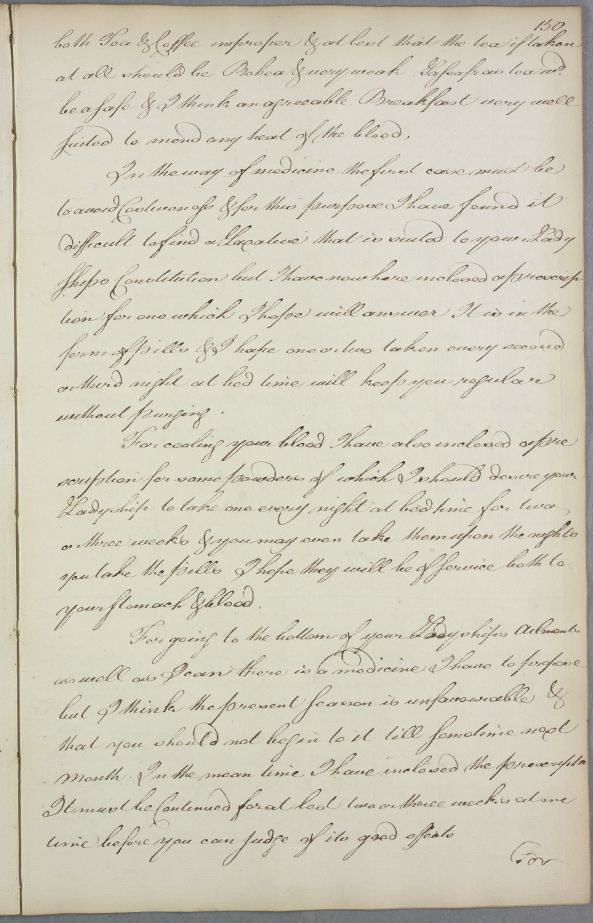 150
both Tea & Coffee improper & at best that the tea if taken
at all should be Bohea & very weak. Sassafras tea wd.
be a safe & I think an agreeable Breakfast very well
suited to mend any heat of the blood.
In the way of medicine the first care must be
to avoid Costiveness & for this purpose I have found it
difficult to find a Laxative that is suited to your Lady
Ships Constitution but I have now here inclosed a prescrip
tion for one which I hope will answer It is in the
form of pills & I hope one or two taken every second
or third night at bed time will keep you regular
without purging.
For cooling your blood I have also inclosed a pre
scription for some powders of which I should desire your
Ladyship to take one every night at bed time for two
or three weeks & you may even take them upon the nights
you take the pills I hope they will be of service both to
your stomach & blood.
For going to the bottom of your Ladyships Ailments
as well as I can there is a medicine I have to propose
but I think the present season is unfavourable &
that you should not begin to it till sometime next
month. In the mean time I have inclosed the prescriptn
It must be Continued for at best two or three weeks at one
time before you can judge of its good effects
For